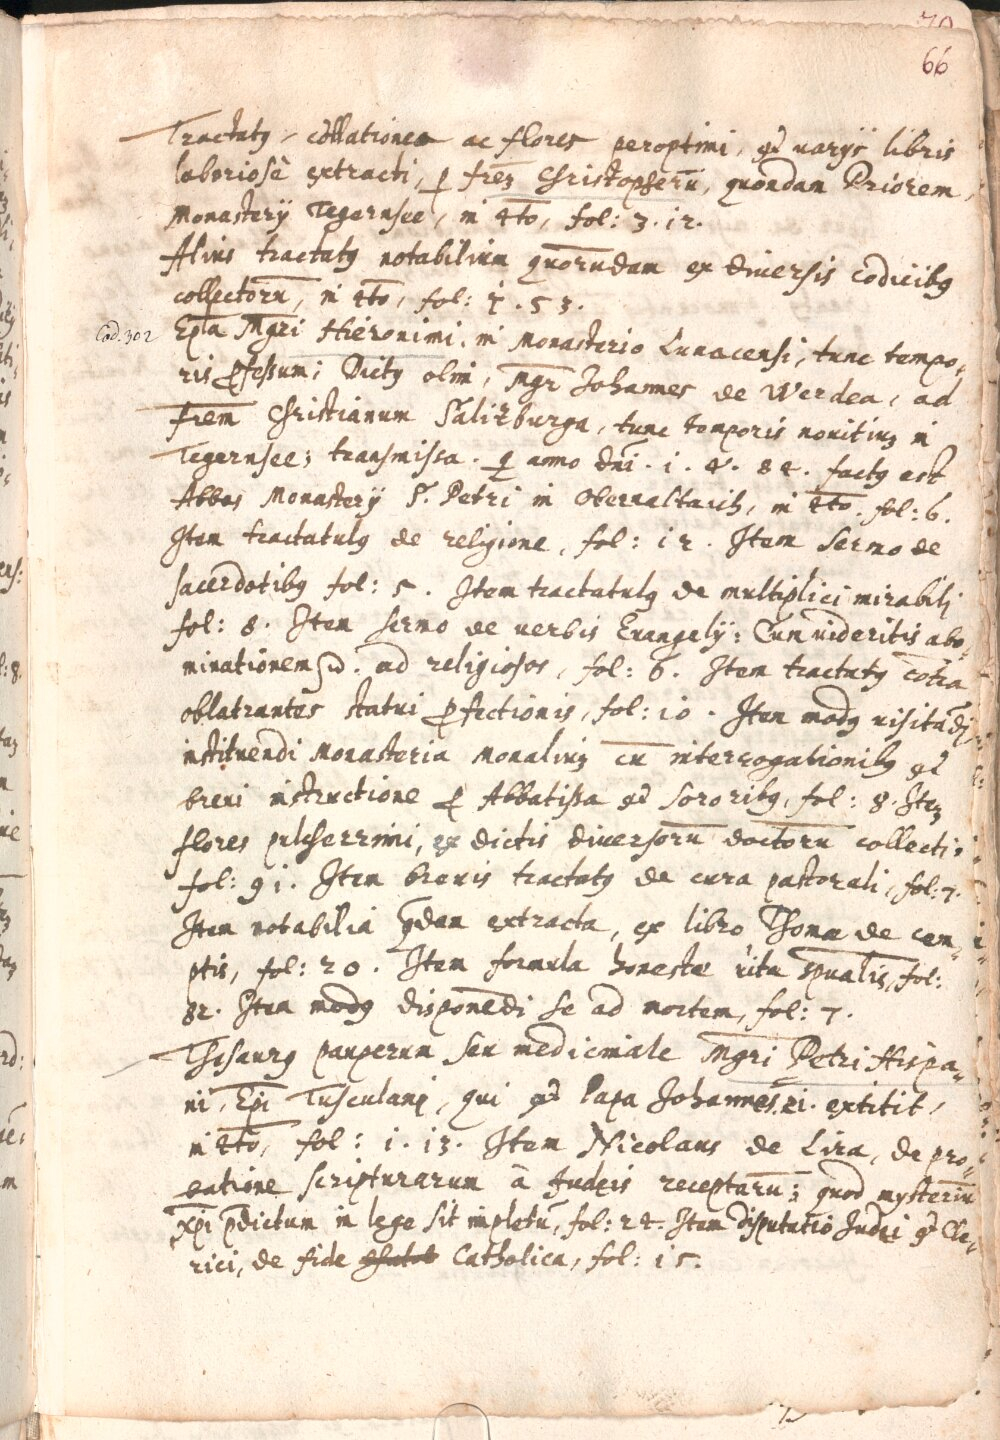 70
66
Tractatꝰ, collationes ac flores peroptimi, ex varijs libris
laboriosè extracti, ꝑ frēz Christopherū, quondam Priorem
Monasterij Tegernsee, in 4to, fol: 312.
Alius tractatꝰ notabilium quorūdam ex diuersis codicibꝰ
collectorū, in 4to, fol: 153.
Cod. 302
Epla Mgri Hieronimi, in Monasterio Lunacensi, tunc tempo-
ris ꝓfessum; Dictꝰ olim, Mgr Johannes de Werdea, ad
frem Christianum Salitzburga, tunc temporis nouitiuz in
Tegernsee; transmissa. q anno dni. 1. 4. 82. factꝰ est
Abbas Monasterij S. Petri in Obernaltaich, in 4to. fol: 6.
Item tractatulꝰ de religione, fol: 12. Item Sermo de
sacerdotibꝰ fol: 5. Item tractatulꝰ de multiplici mirabili
fol: 8. Item sermo de uerbis Euangelij: Cum uideritis abo-
minationem ad religiosos, fol: 6. Item tractatꝰ cōtra
oblatrantes statui ꝑfectionis, fol: 10. Item modꝰ uisitādi
instituendi Monasteria Monaliuz cū interrogationibꝰ et
breui instructione ꝓ Abbatissa et sororibꝰ, fol: 8. Itez
flores pulcherrimi, ex dictis diuersorū doctorū collecti,
fol: 91. Item breuis tractatꝰ de cura pastorali, fol: 7.
Item notabilia qdam extracta, ex libro Thomæ de cem-
ptis, fol: 20. Item formula honestæ uitæ spualis, fol:
82. Item modꝰ disponēdi se ad mortem, fol: 7.
Thesaurꝰ pauperum seu medicinale Mgri Petri Hispa-
ni, Epi Tusculani, qui et Papa Johannes. 21. extitit,
in 4to, fol: 113. Item Nicolaus de Lira, de pro-
batione scripturarum à Judeis receptarū; quod mysteriū
Xpi pdictum in lege sit impletū, fol: 24. Item disputatio Judei et Cle-
rici, de fide Catholica, fol: 15.